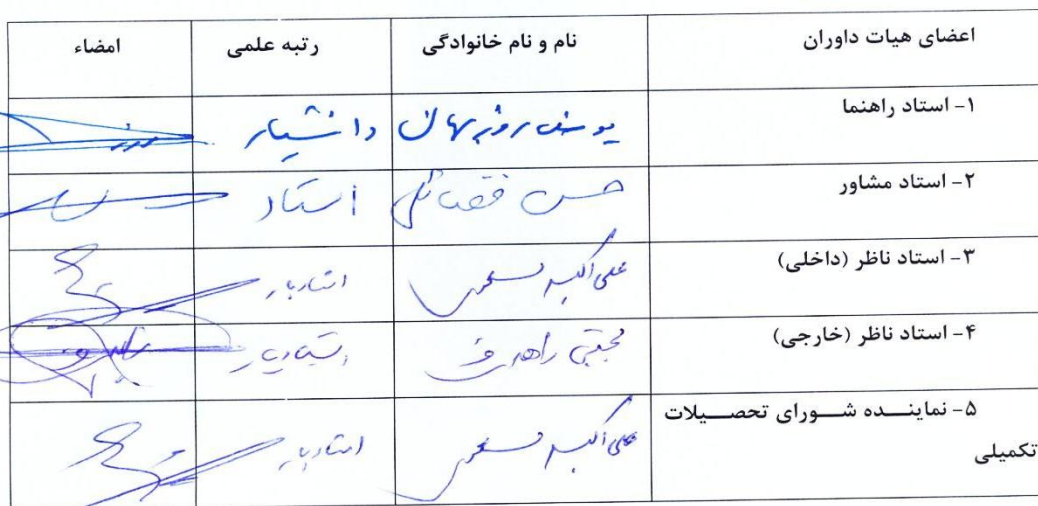 اعضای هیات داوران نام و نام خانوادگی رتبه علمی امضاء
۱- استاد راهنما یوسف روزبهان دانشیار
۲- استاد مشاور حسن فضائلی استاد
۳- استاد ناظر (داخلی) علی اکبر استادیار
۴- استاد ناظر (خارجی) مجتبی زاهدی فر استادیار
۵- نماینده شورای تحصیلات علی اکبر استادیار
تکمیلی